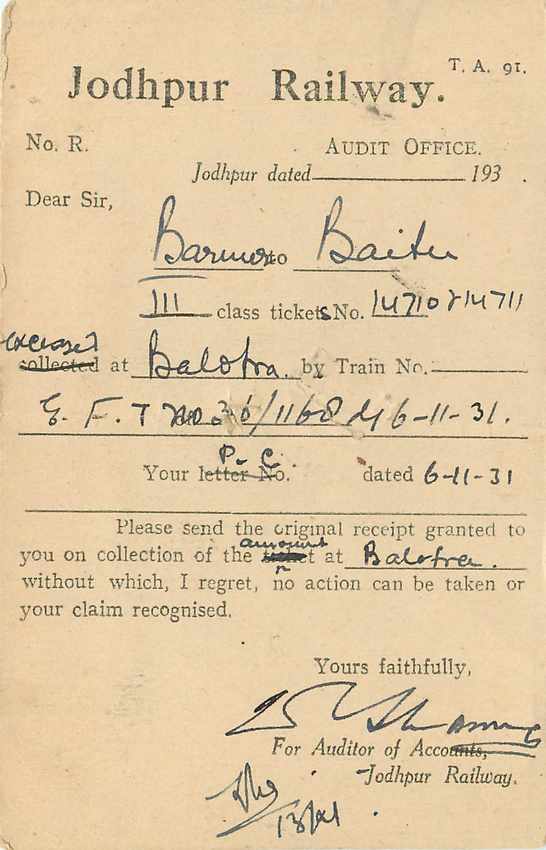 T. A. 91.
Jodhpur Railway.
No. R. AUDIT OFFICE.
Jodhpur dated 193 .
Dear Sir,
Barmer to Baitu
III class tickets No. 14710 & 14711
excessed
collected at Balotra. by Train No.
E. F. T no. 36/1168 of 6-11-31.
P. C.
Your letter No. dated 6-11-31
Please send the original receipt granted to
amount
you on collection of the at Balotra.
without which, I regret, no action can be taken or
your claim recognised.
Yours faithfully,
For Auditor of Accounts,
Jodhpur Railway.